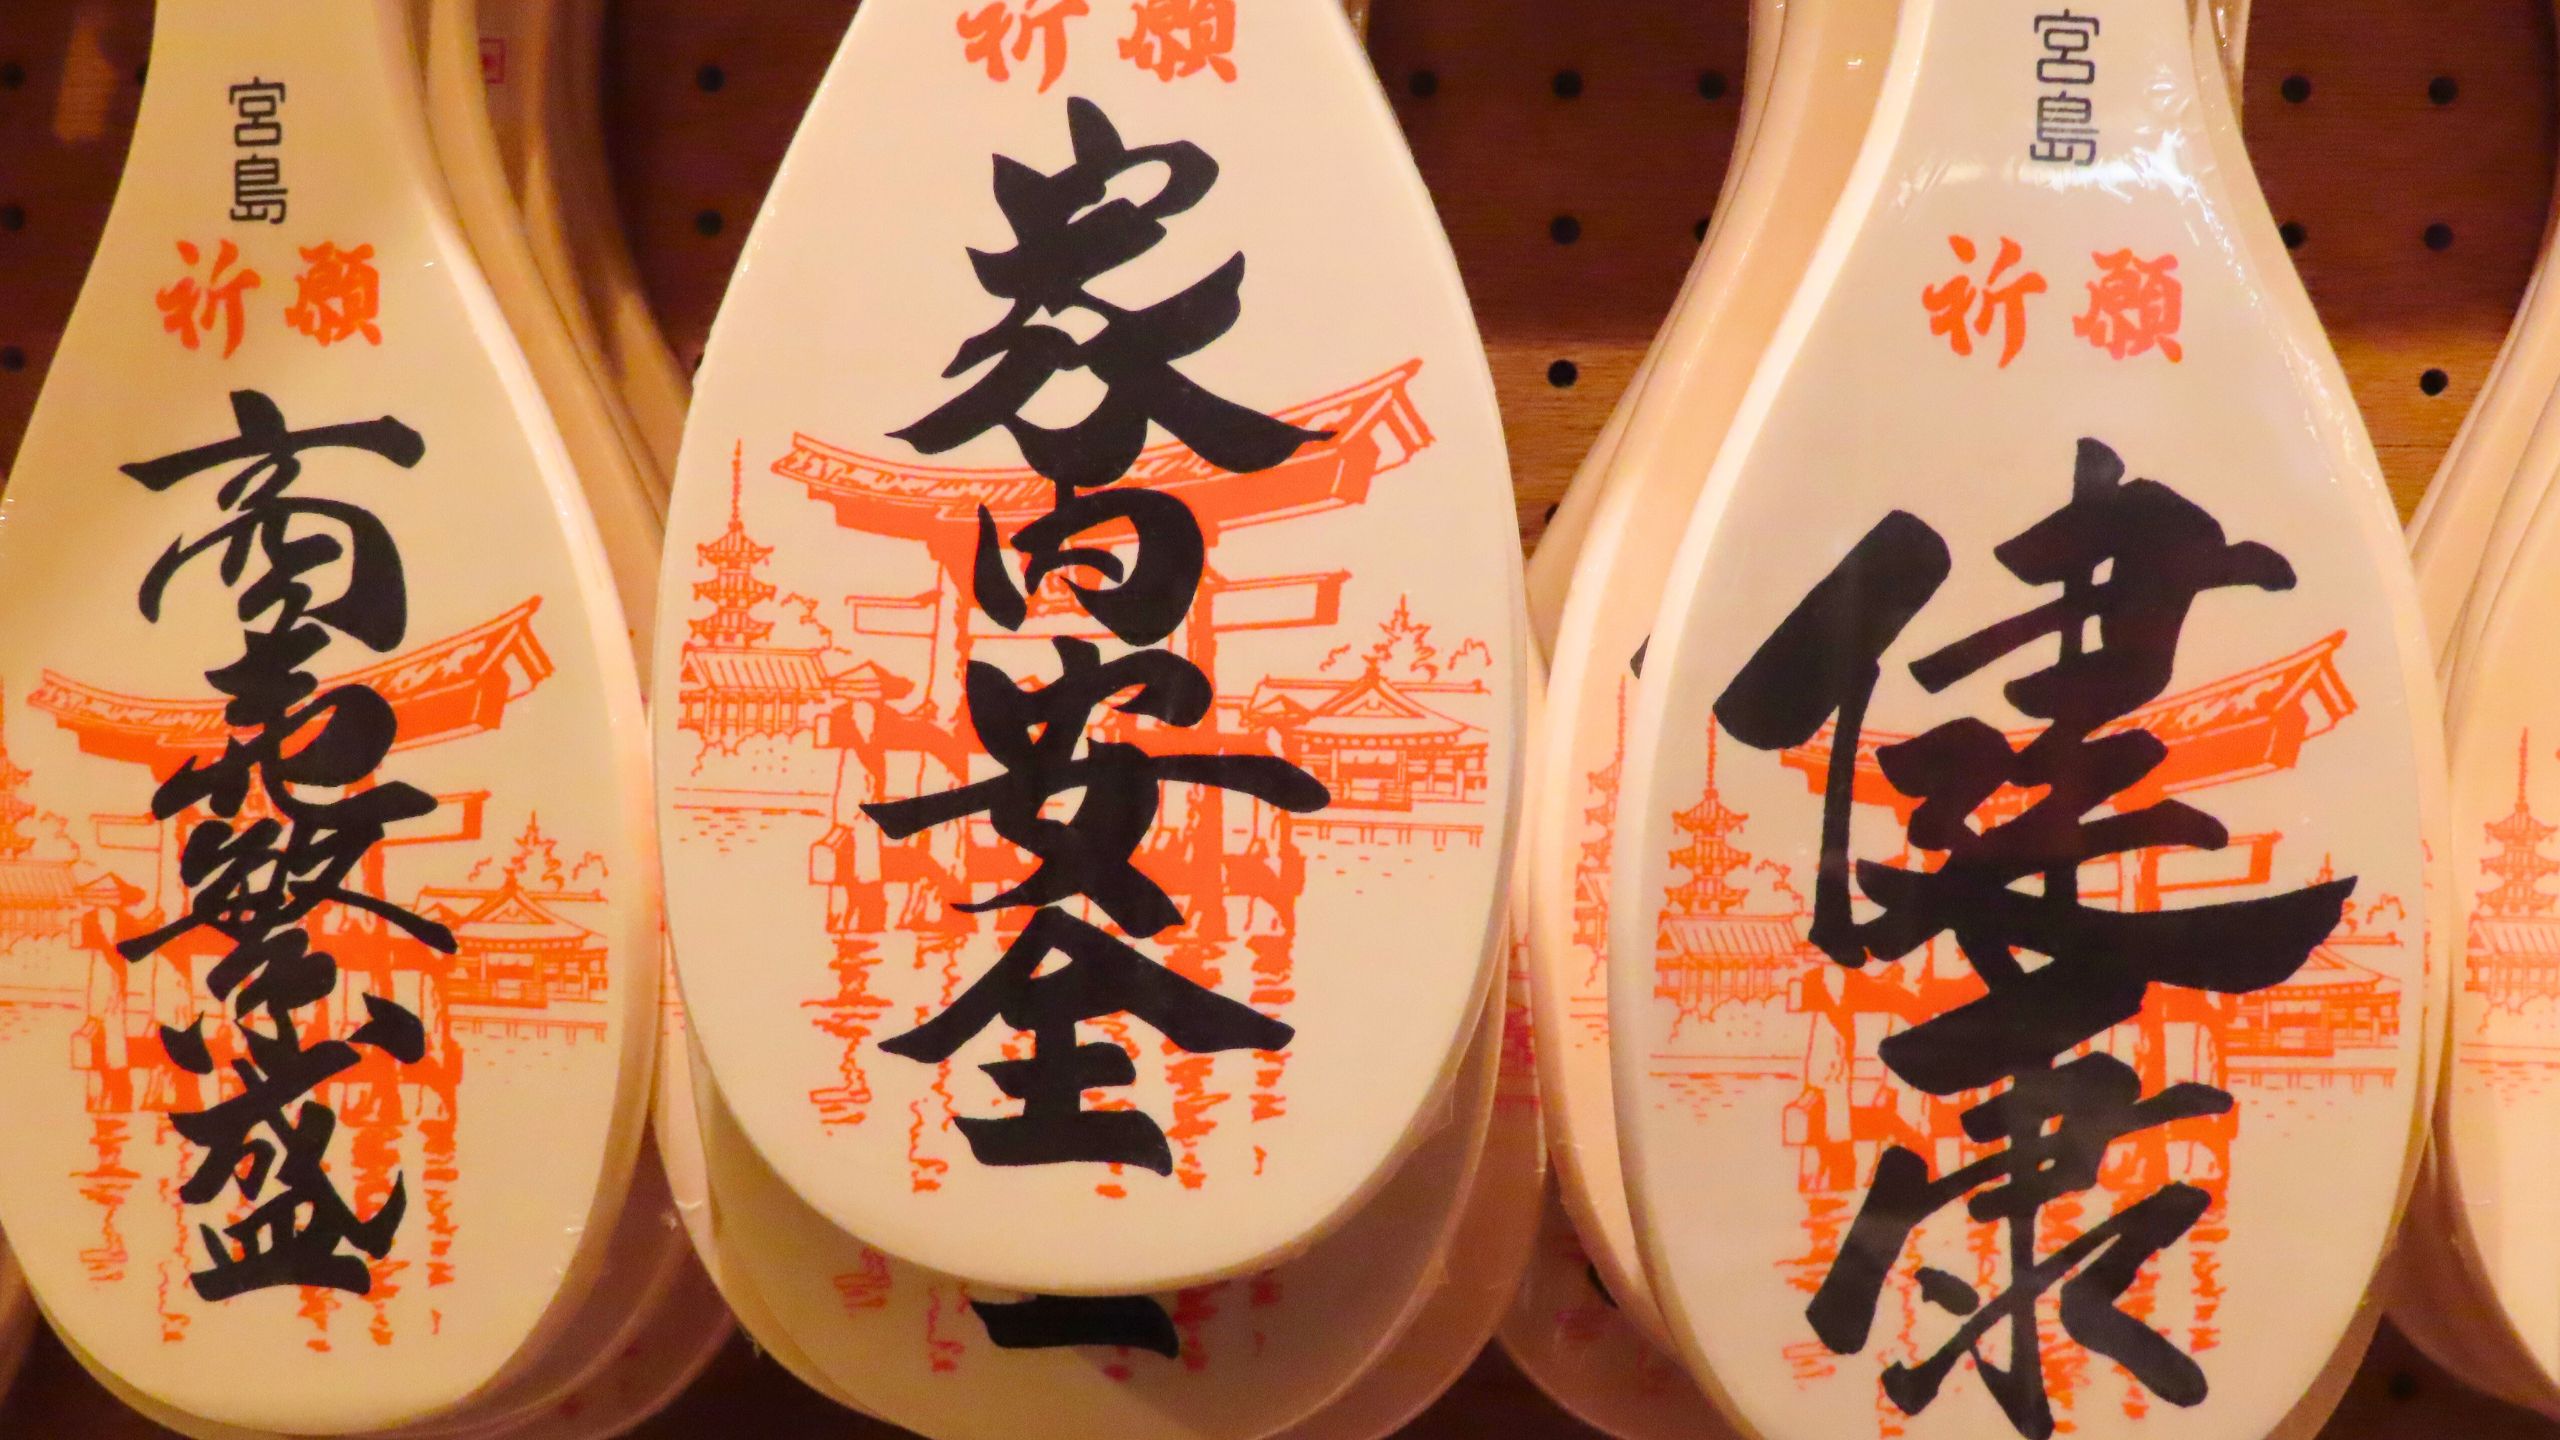 宮島
祈願
商売繁盛
祈願
家内安全
宮島
祈願
健康